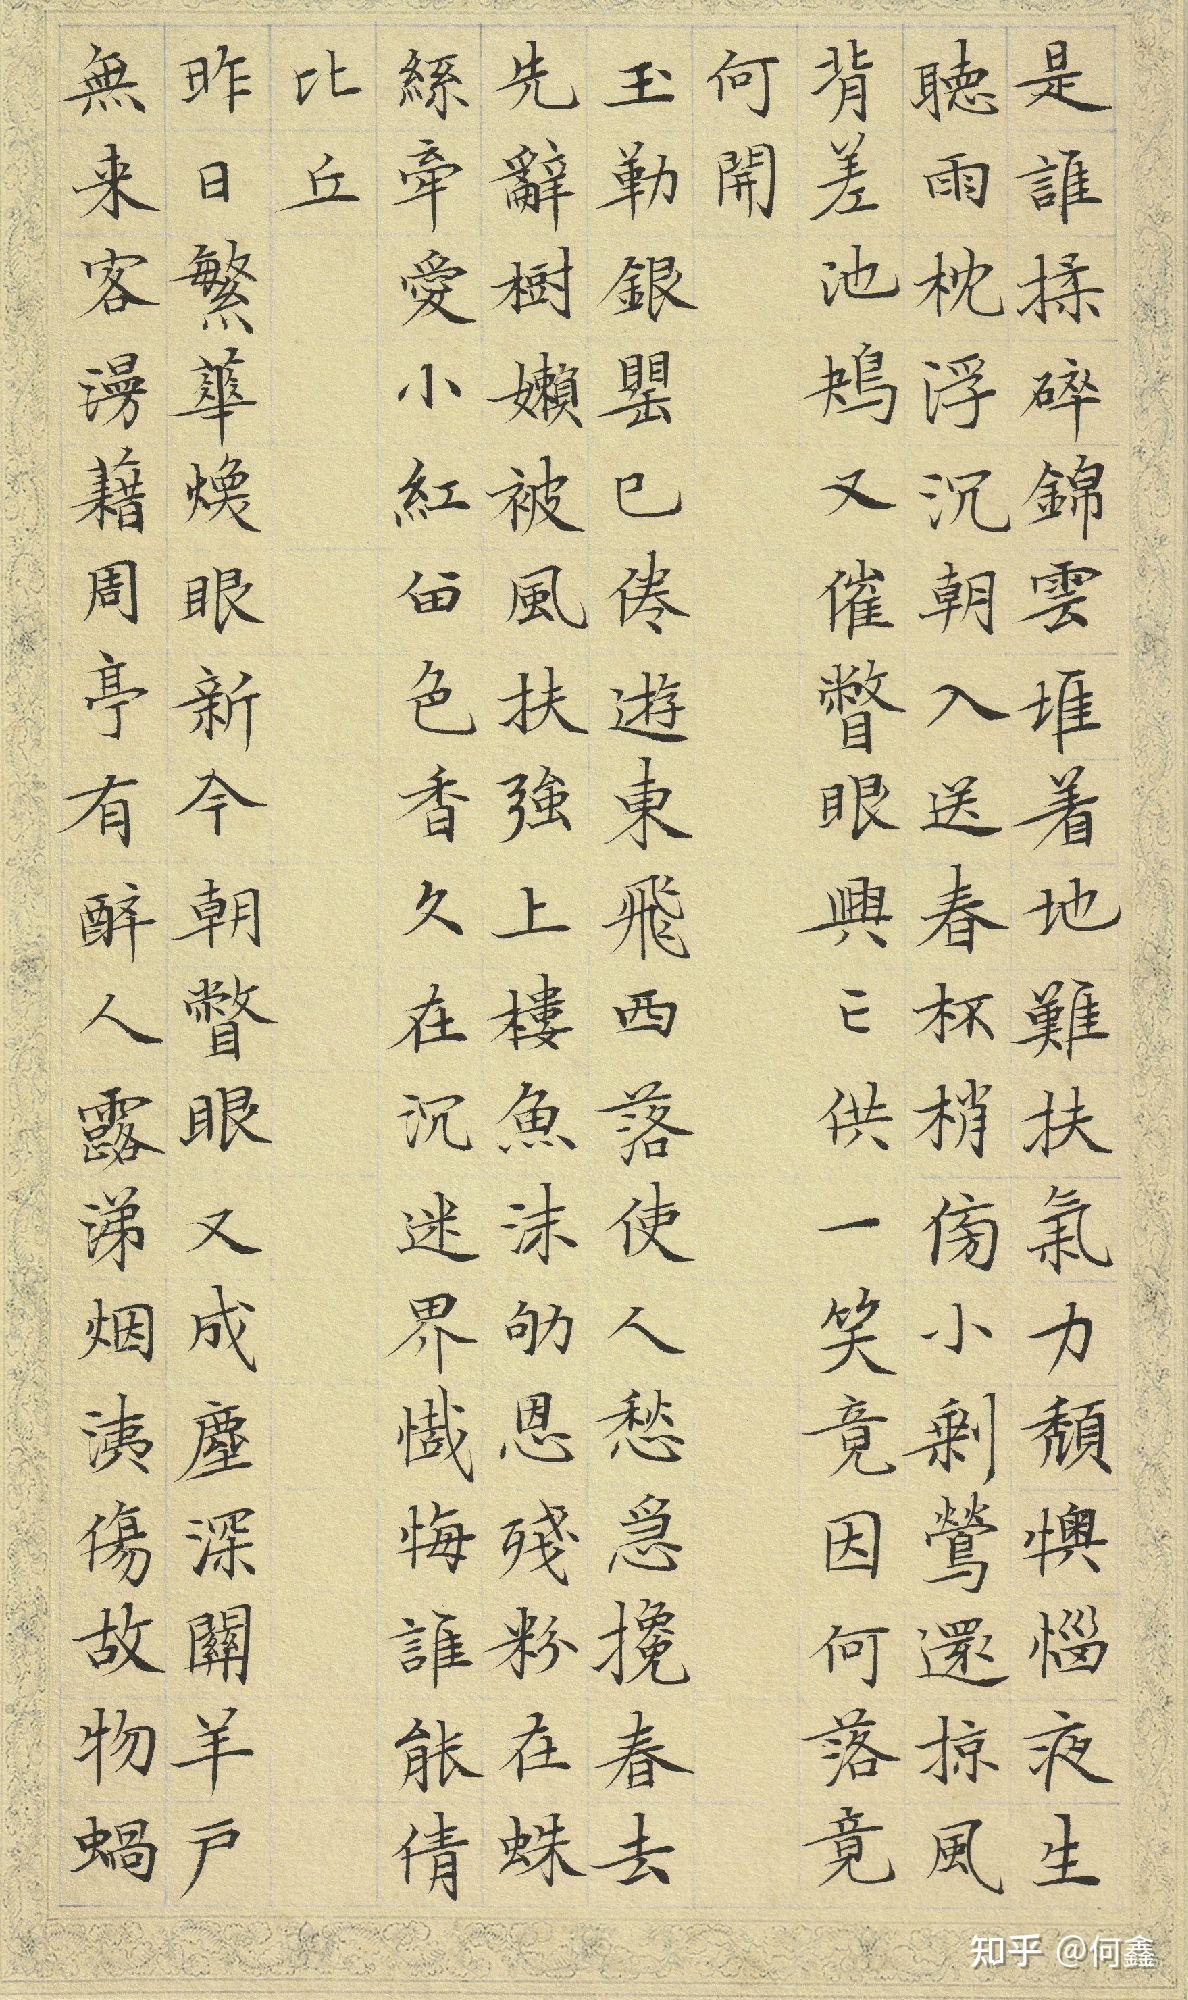 是誰揉碎錦雲堆着地難扶氣力頹懊惱夜生
聽雨枕浮沉朝入送春杯梢傍小剩鶯還掠風
背差池鴂又催瞥眼興亡供一笑竟因何落竟
何開
玉勒銀罌已倦遊東飛西落使人愁急攙春去
先辭樹嬾被風扶強上樓魚沫劬恩殘粉在蛛
絲牽愛小紅留色香久在沉迷界懺悔誰能倩
比丘
昨日繁華煥眼新今朝瞥眼又成塵深關羊戶
無来客漫藉周亭有醉人露涕烟洟傷故物蝸
知乎 @何鑫